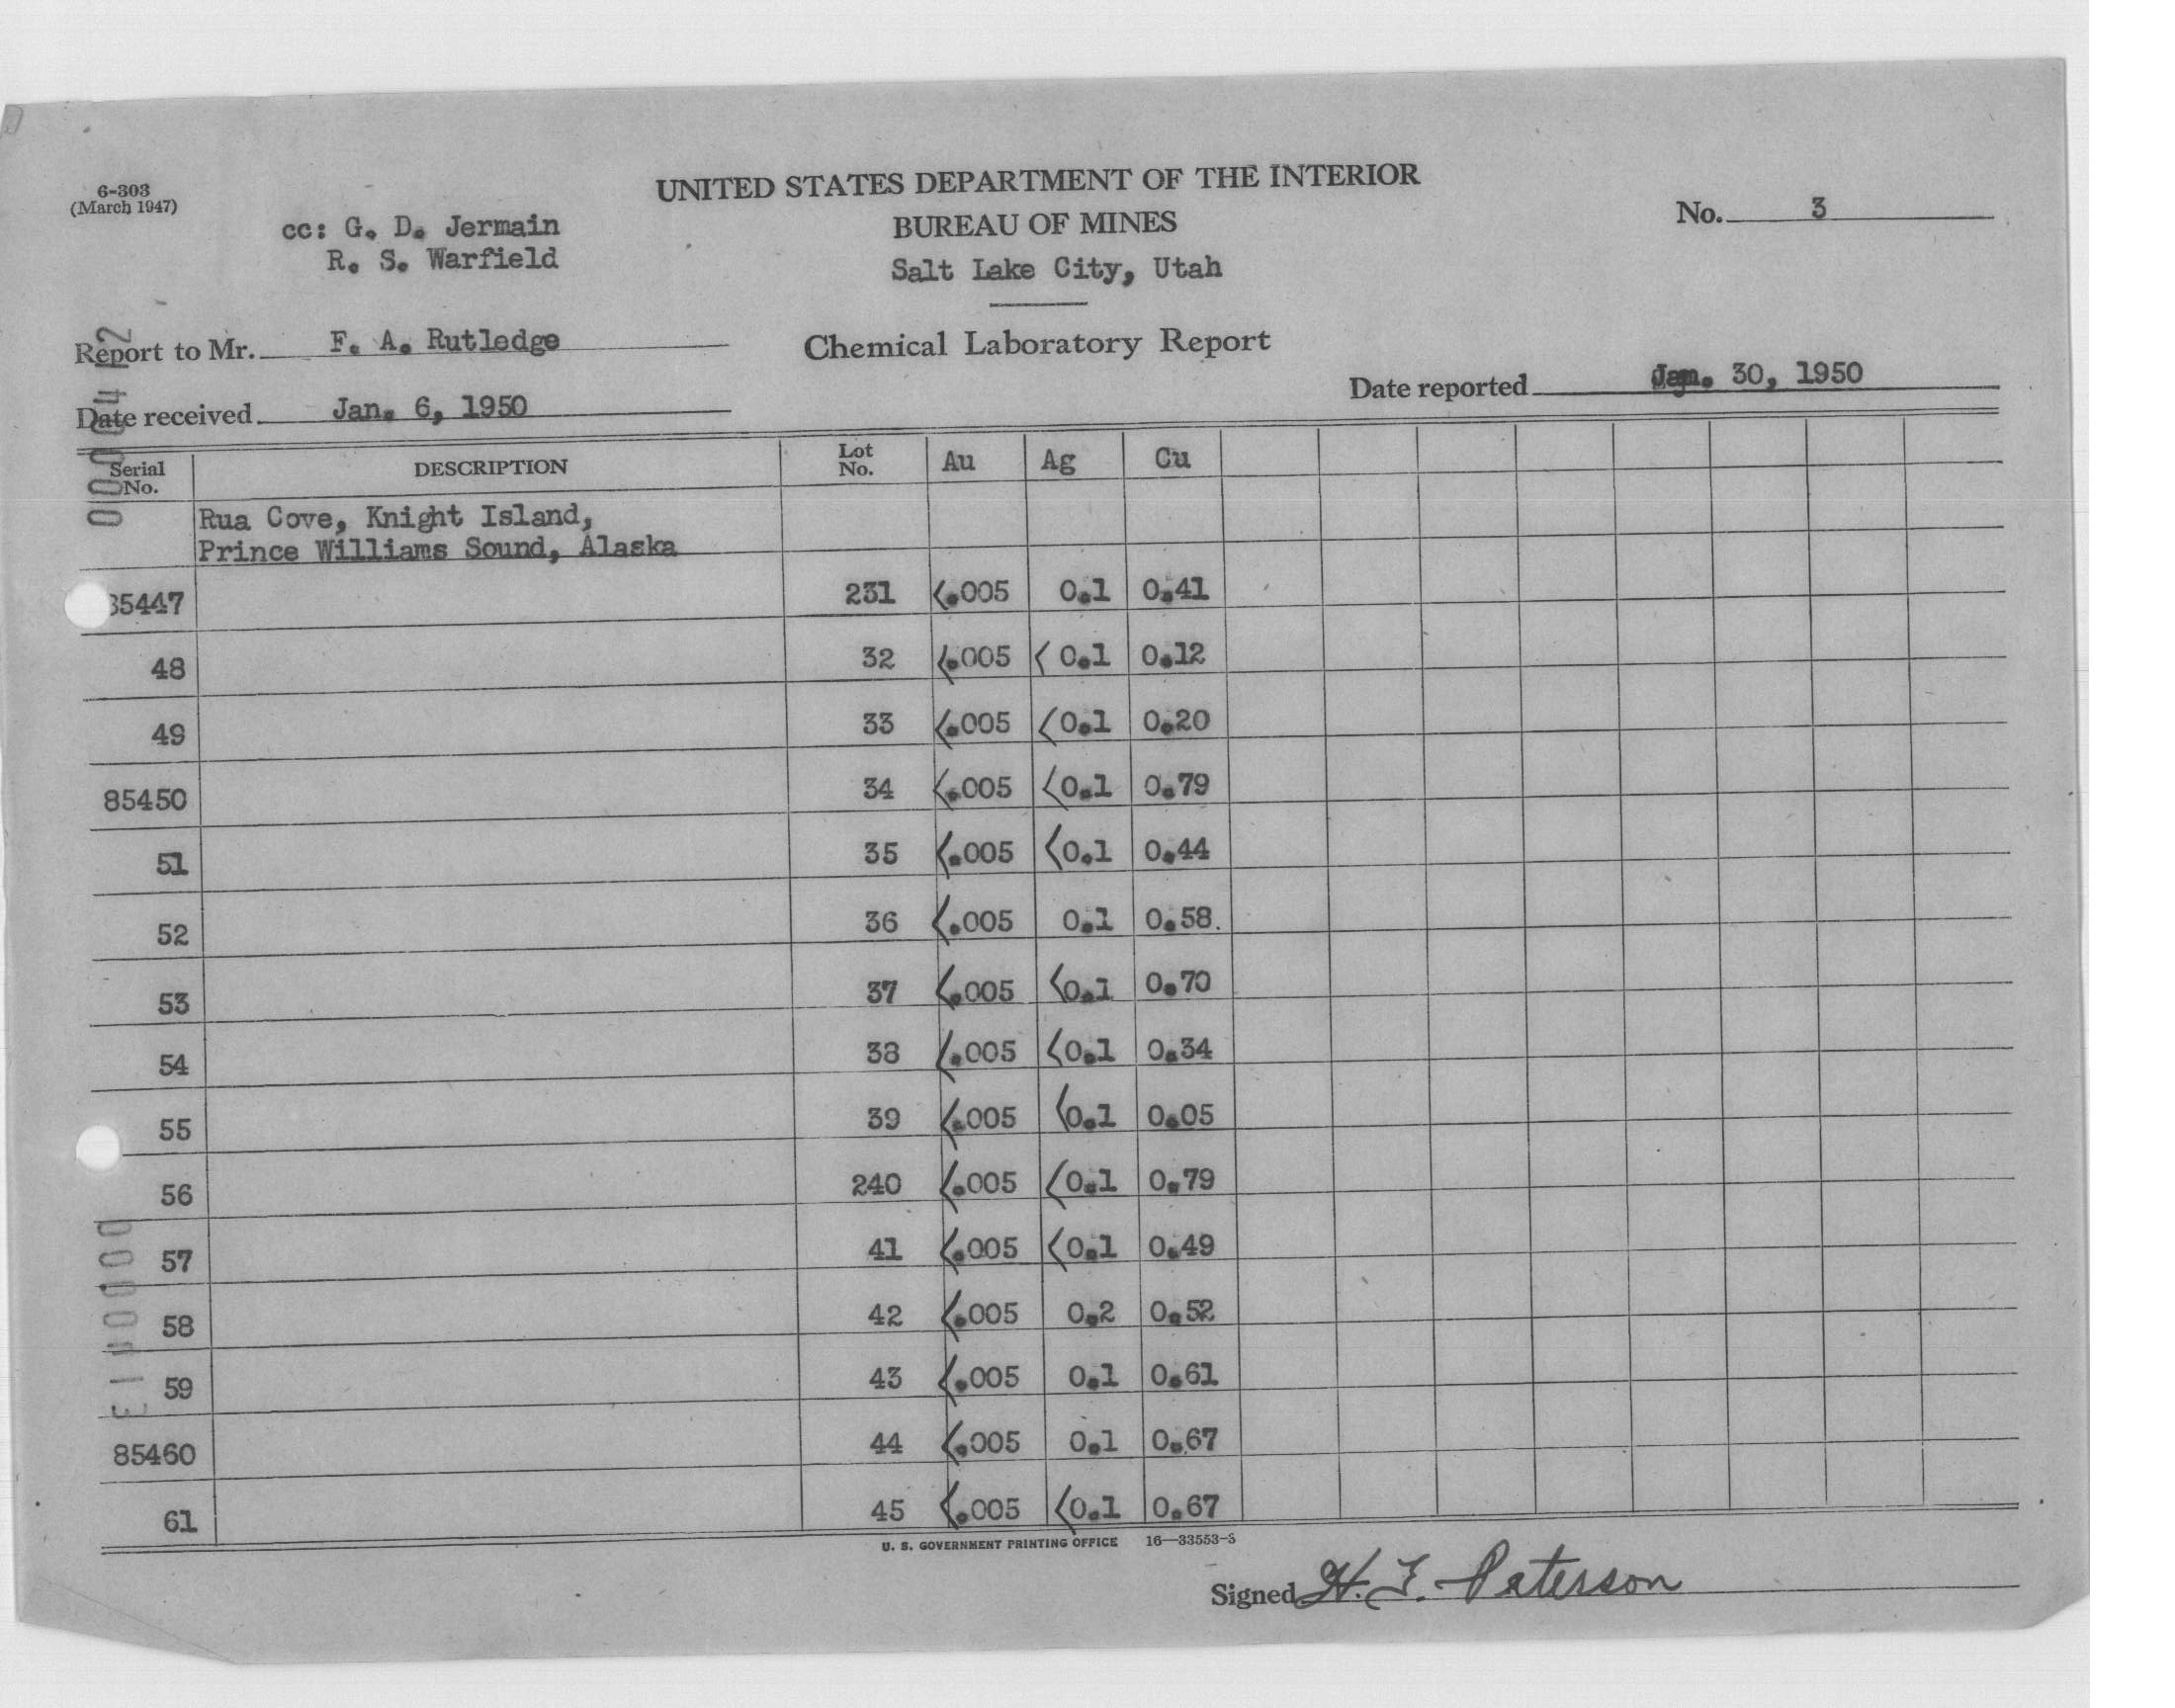 6-303
(March 1947)
UNITED STATES DEPARTMENT OF THE INTERIOR
BUREAU OF MINES
Salt Lake City, Utah
No. 3
cc: G. D. Jermain
R. S. Warfield
Report to Mr. F. A. Rutledge
Chemical Laboratory Report
Date received Jan. 6, 1950
Date reported Jan. 30, 1950
Serial No. DESCRIPTION Lot No. Au Ag Cu
Rua Cove, Knight Island,
Prince Williams Sound, Alaska
85447 231 <.005 0.1 0.41
48 32 <.005 <0.1 0.12
49 33 <.005 <0.1 0.20
85450 34 <.005 <0.1 0.79
51 35 <.005 <0.1 0.44
52 36 <.005 0.1 0.58.
53 37 <.005 <0.1 0.70
54 38 <.005 <0.1 0.34
55 39 <.005 <0.1 0.05
56 240 <.005 <0.1 0.79
57 41 <.005 <0.1 0.49
58 42 <.005 0.2 0.52
59 43 <.005 0.1 0.61
85460 44 <.005 0.1 0.67
61 45 <.005 <0.1 0.67
U. S. GOVERNMENT PRINTING OFFICE 16—33553-S
Signed H. F. Paterson
0000412
0000413